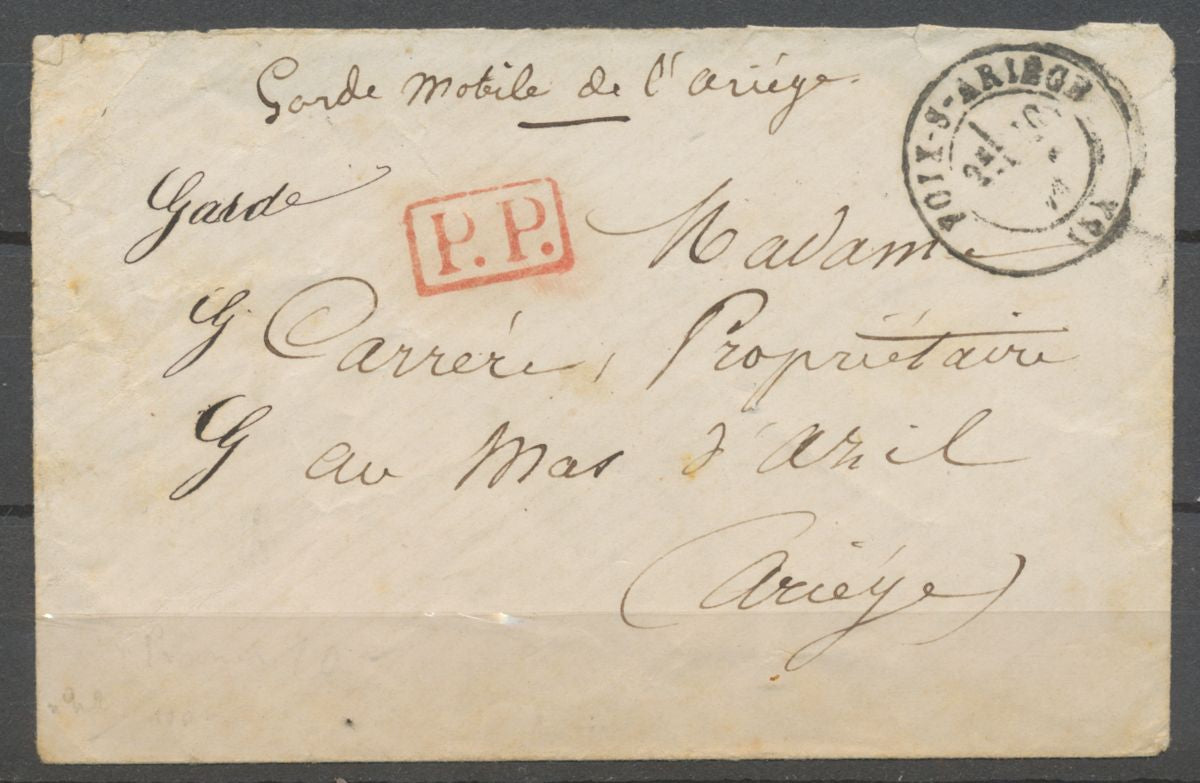 Garde Mobile de l'ariége
FOIX-S-ARIÈGE
(8)
Garde
P.P.
Madame
G Carrère, Propriétaire
G au Mas d'azil
(Ariége)